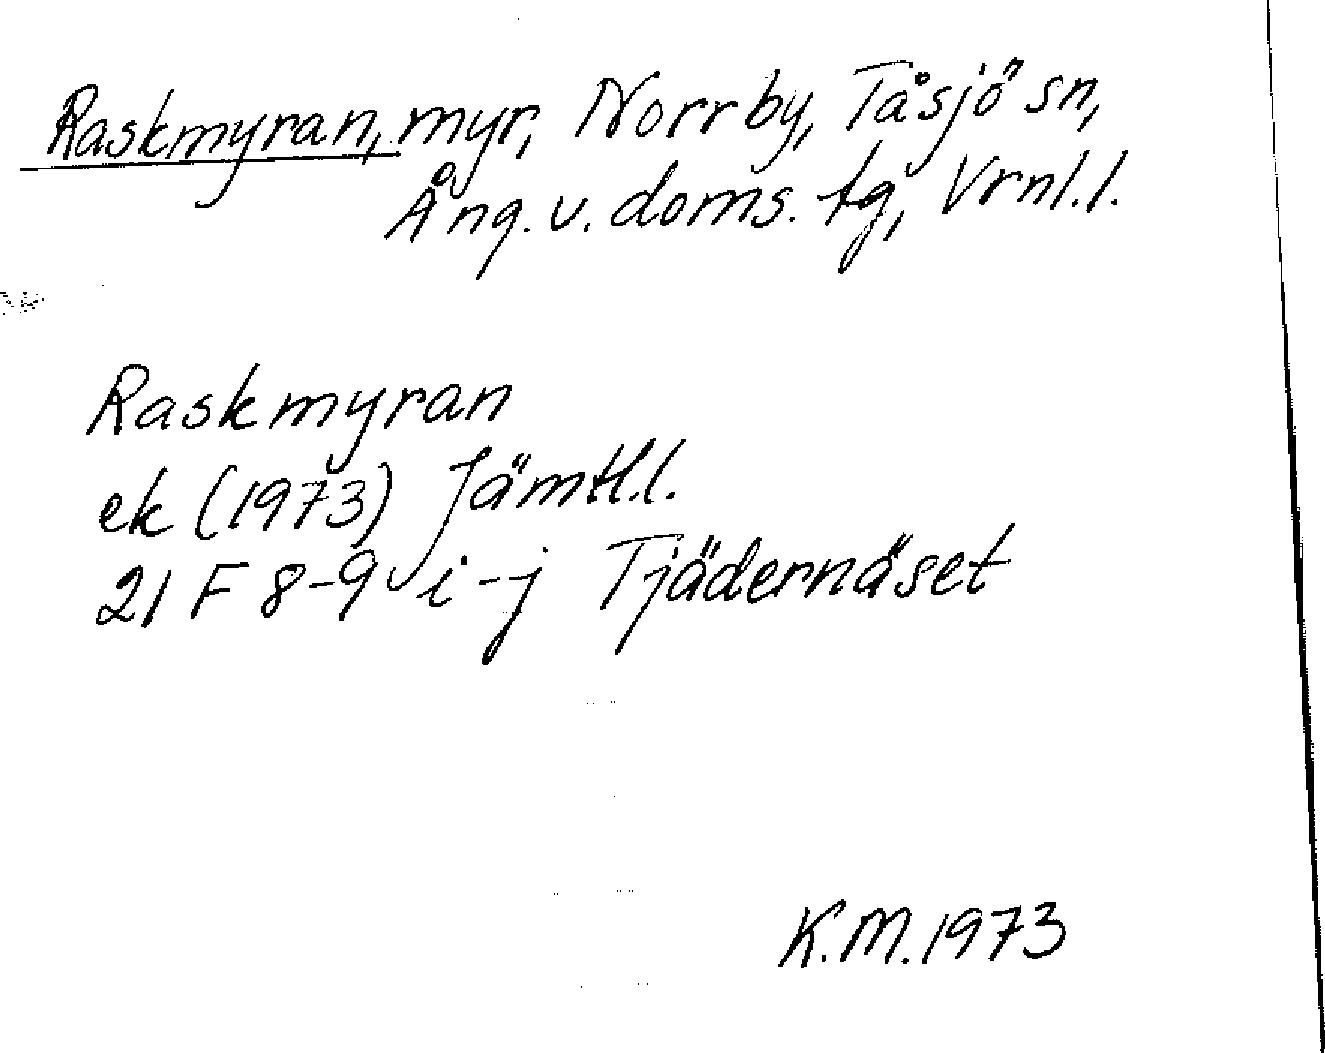 Raskmyran, myr, Norrby, Tåsjö sn,
Ång. v. doms. tg, Vrnl. l.
Raskmyran
ek (1973) Jämtl. l.
21 F 8-9 i-j Tjädernäset
K.M. 1973